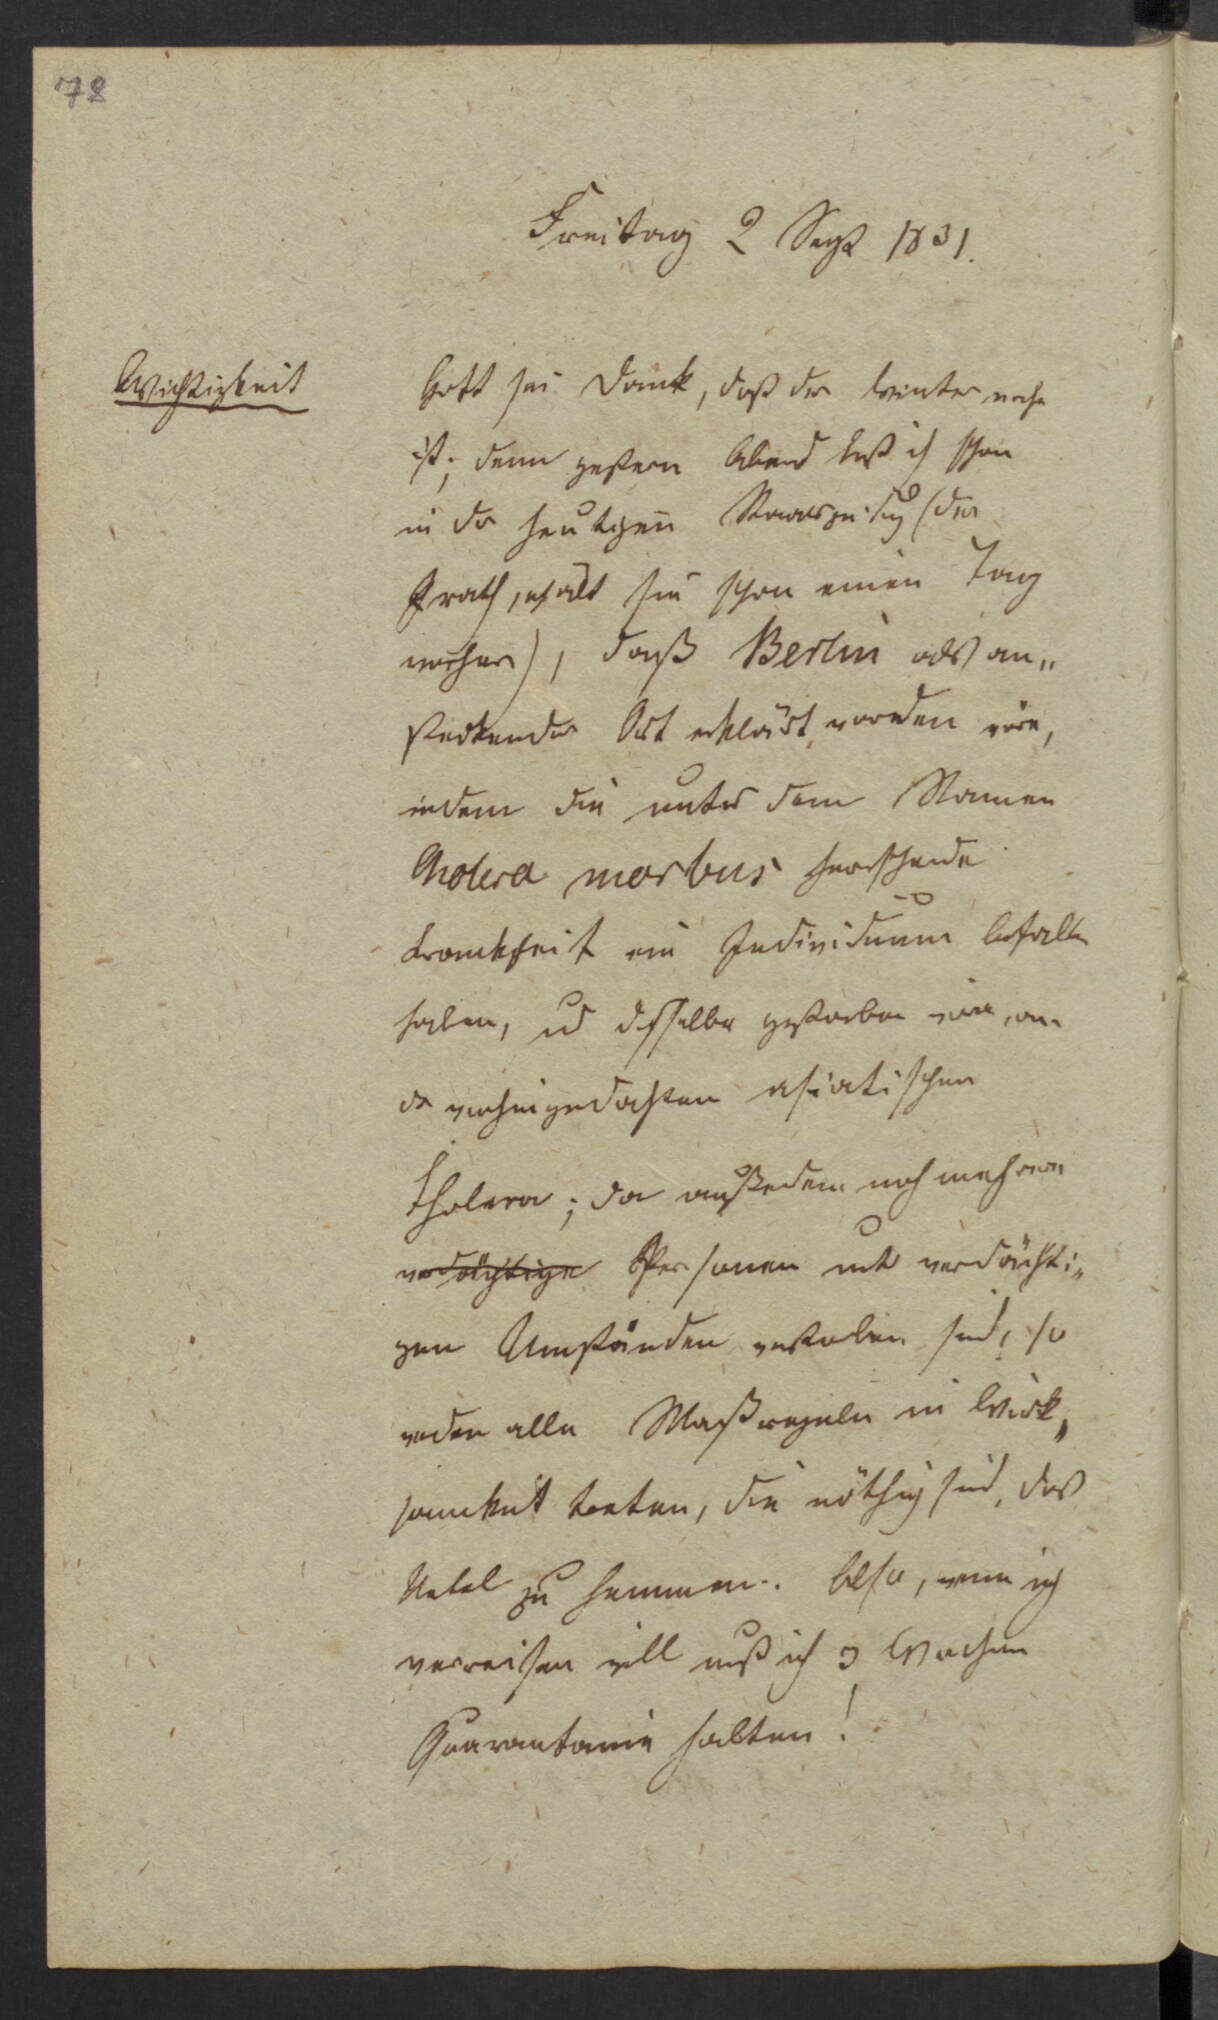 78
Freitag 2 Sept 1831.
Wichtigkeit
Gott sei Dank, daß der Winter nahe
ist; denn gestern Abend las ich schon
in der heutigen Staatszeitung (der
erhält sie schon einen Tag
vorher), daß Berlin als an„
steckender Ort erklärt worden wäre,
indem die unter dem Namen
Cholera morbus herrschende
Krankheit ein Individuum befallen
haben, und desselbe gestorben wäre, an
der vorhingedachten asiatischen
Cholera; da außerdem noch mehrere
verdächtige Personen unter verdächti„
gen Umständen gestorben sind, so
werden alle Maßregeln in Wirk„
samkeit treten, die nöthig sind, das
Uebel zu hemmen. Also, wenn ich
verreisen will muß ich 3 Wochen
Quarantaine halten!